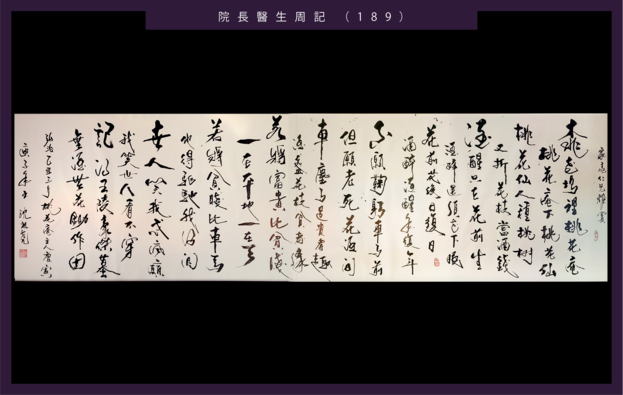 院長醫生周記（189）
桃花塢裡桃花庵
桃花庵下桃花仙
桃花仙人種桃樹
又折花枝當酒錢
酒醒只在花前坐
酒醉還須花下眠
花前花後日復日
酒醉酒醒年復年
不願鞠躬車馬前
但願老死花酒間
車塵馬足貴者趣
酒盞花枝貧者緣
若將富貴比貧賤
一在平地一在天
若將貧賤比車馬
他得驅馳我得閒
世人笑我忒瘋癲
我笑世人看不穿
記得五陵豪傑墓
無酒無花鋤作田
弘治乙丑三月桃花庵主人唐寅